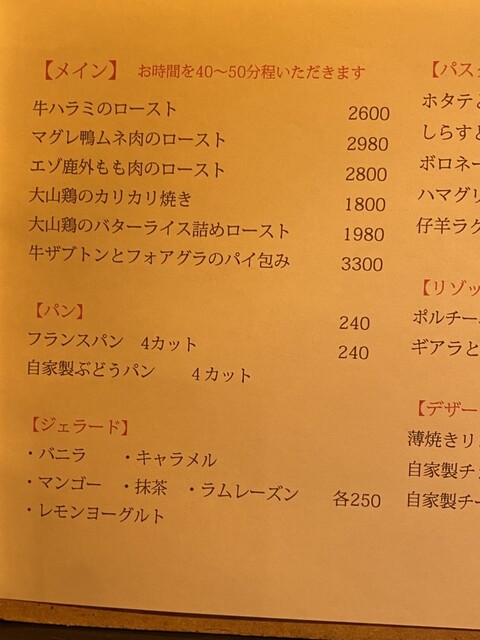 【メイン】 お時間を40〜50分程いただきます
牛ハラミのロースト 2600
マグレ鴨ムネ肉のロースト 2980
エゾ鹿外もも肉のロースト 2800
大山鶏のカリカリ焼き 1800
大山鶏のバターライス詰めロースト 1980
牛ザブトンとフォアグラのパイ包み 3300
【パン】
フランスパン 4カット 240
自家製ぶどうパン 4カット 240
【ジェラード】
・バニラ ・キャラメル
・マンゴー ・抹茶 ・ラムレーズン 各250
・レモンヨーグルト
【パス
ホタテと
しらすと
ボロネー
ハマグリ
仔羊ラグ
【リゾッ
ポルチー
ギアラと
【デザー
薄焼きリ
自家製チ
自家製チー